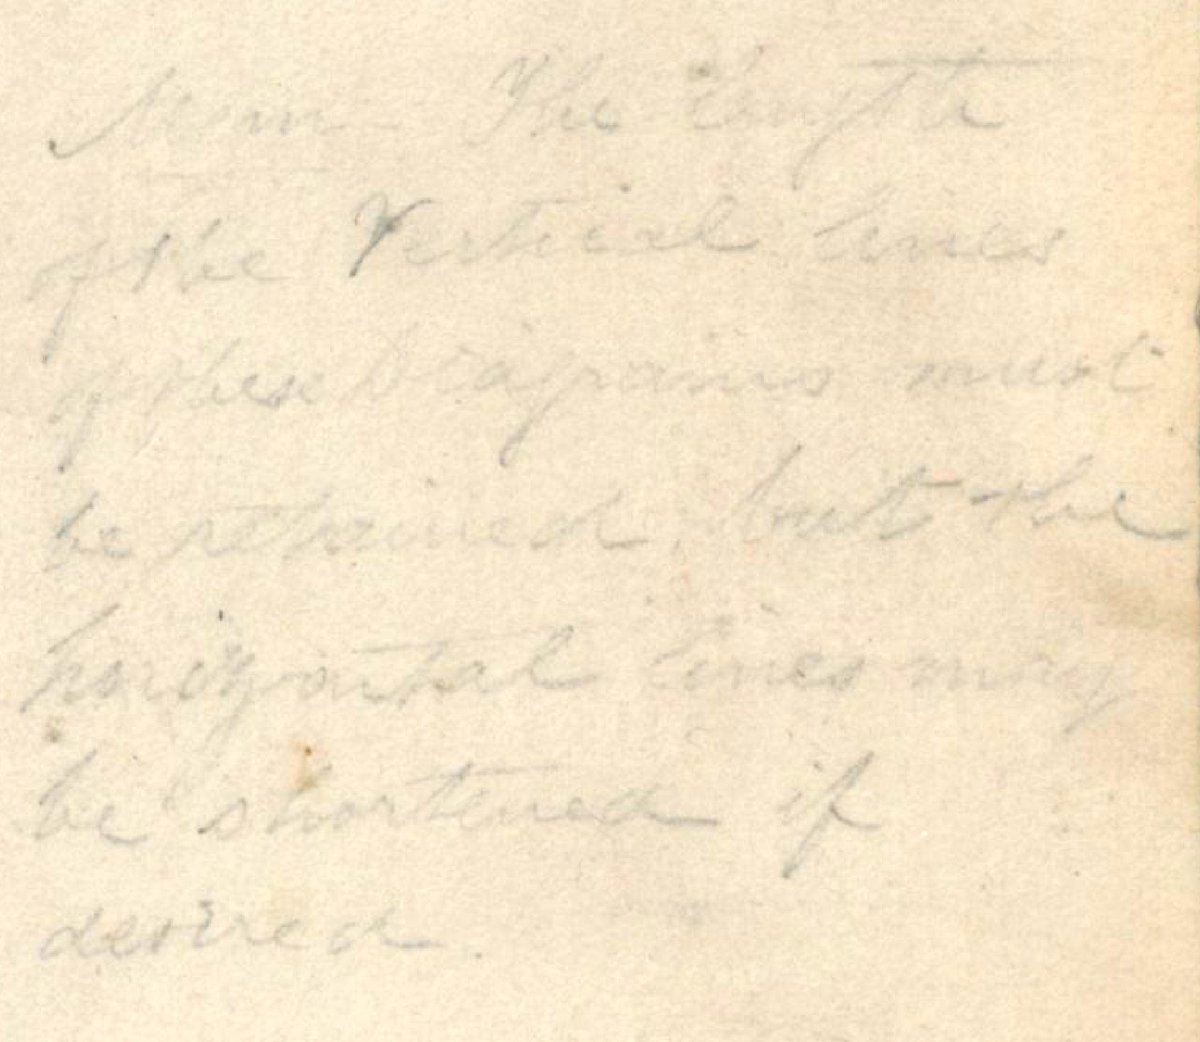 Mem - The length
of the Vertical lines
of these Diagrams must
be retained, but the
horizontal lines may
be shortened if
desired.